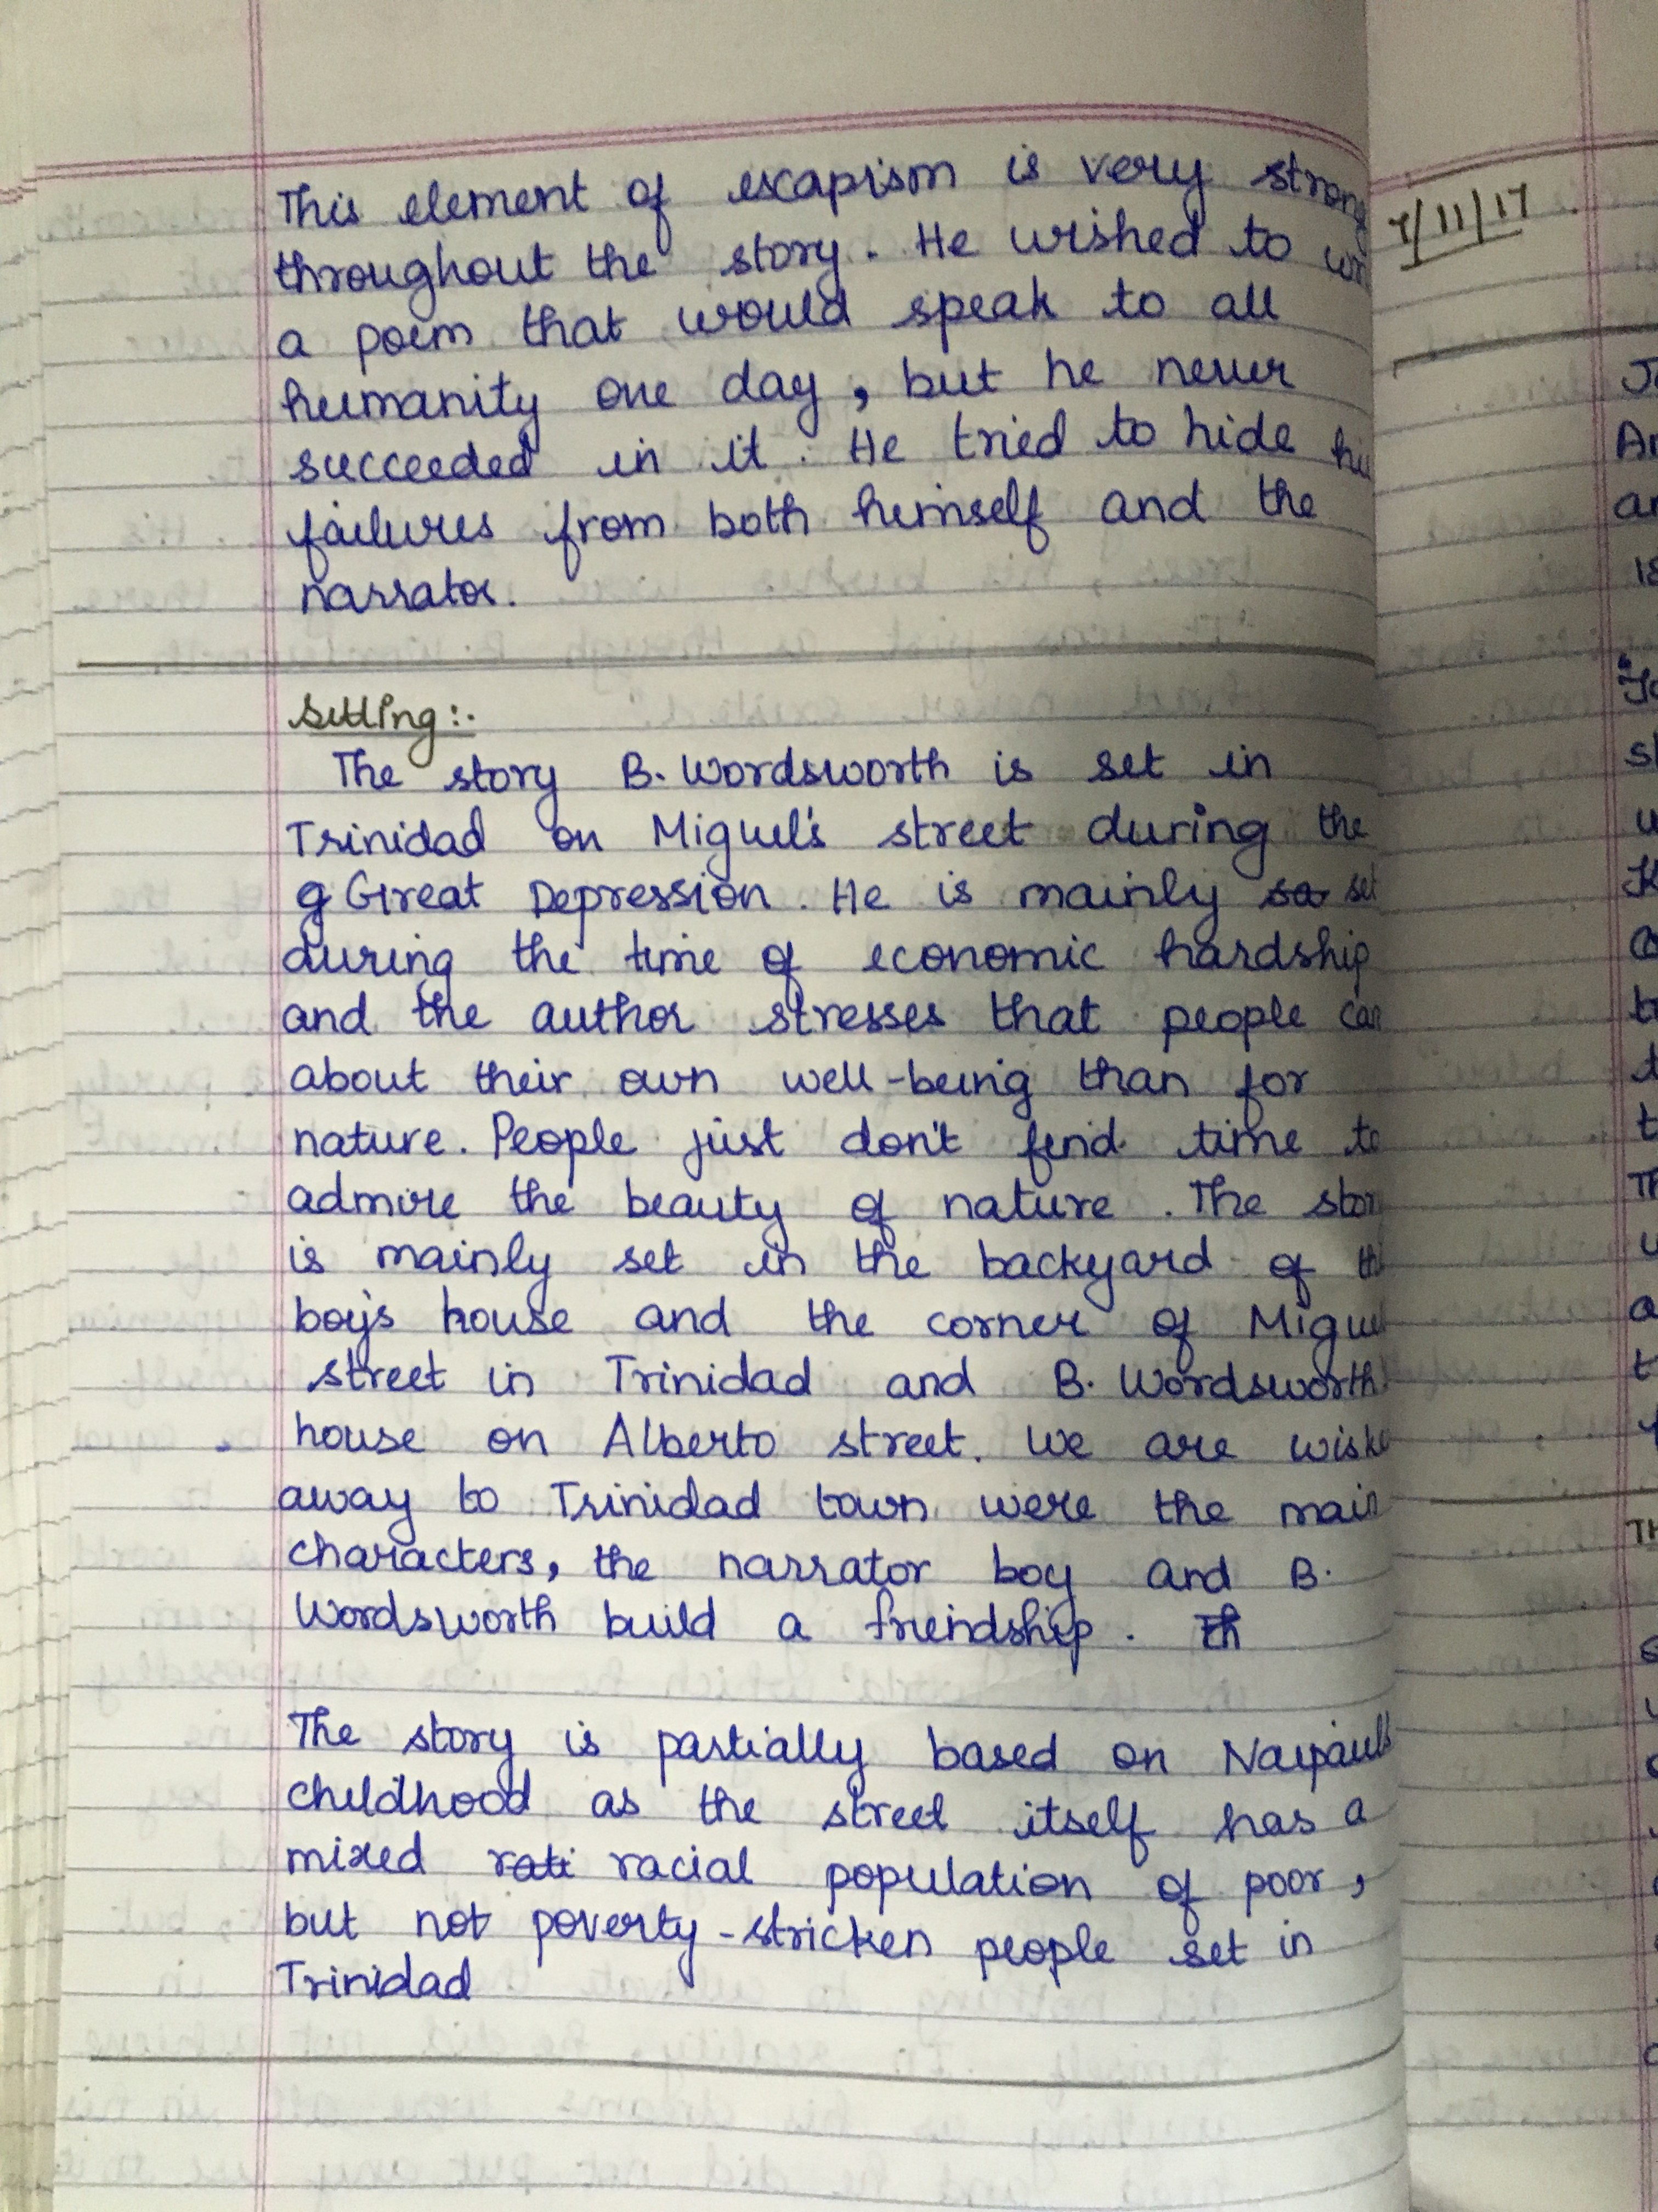 This element of escapism is very strong
throughout the story. He wished to
a poem that would speak to all
humanity one day, but he never
succeeded in it. He tried to hide
failures from both himself and the
narrator.
Setting:.
The story B. Wordsworth is set in
Trinidad on Miguel's street during the
g Great Depression. He is mainly so set
during the time of economic hardship
and the author stresses that people
about their own well-being than for
nature. People just don't find time to
admire the beauty of nature. The
is mainly set in the backyard of
boy's house and the corner of
street in Trinidad and B. Wordsworth
house on Alberto street. We are
away to Trinidad town were the main
characters, the narrator boy and B.
Wordsworth build a friendship. Th
The story is partially based on Naipaul's
childhood as the street itself has a
mixed rati racial population of poor,
but not poverty-stricken people set in
Trinidad
7/11/17.